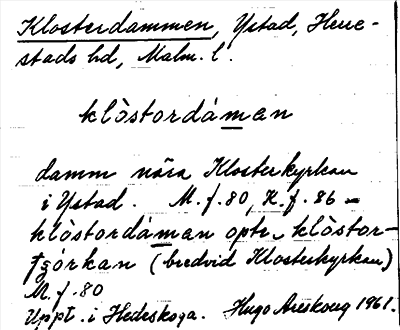 Klosterdammen, Ystad, Herre-
stads hd, Malm. l.
klòstordáman
damm nära Klosterkyrkan
i Ystad. M. f. 80, K. f. 86 –
klòstordáman opte klòstor-
górkan (bredvid Klosterkyrkan)
M. f. 80
Uppt. i Hedeskoga. Hugo Areskoug 1961.